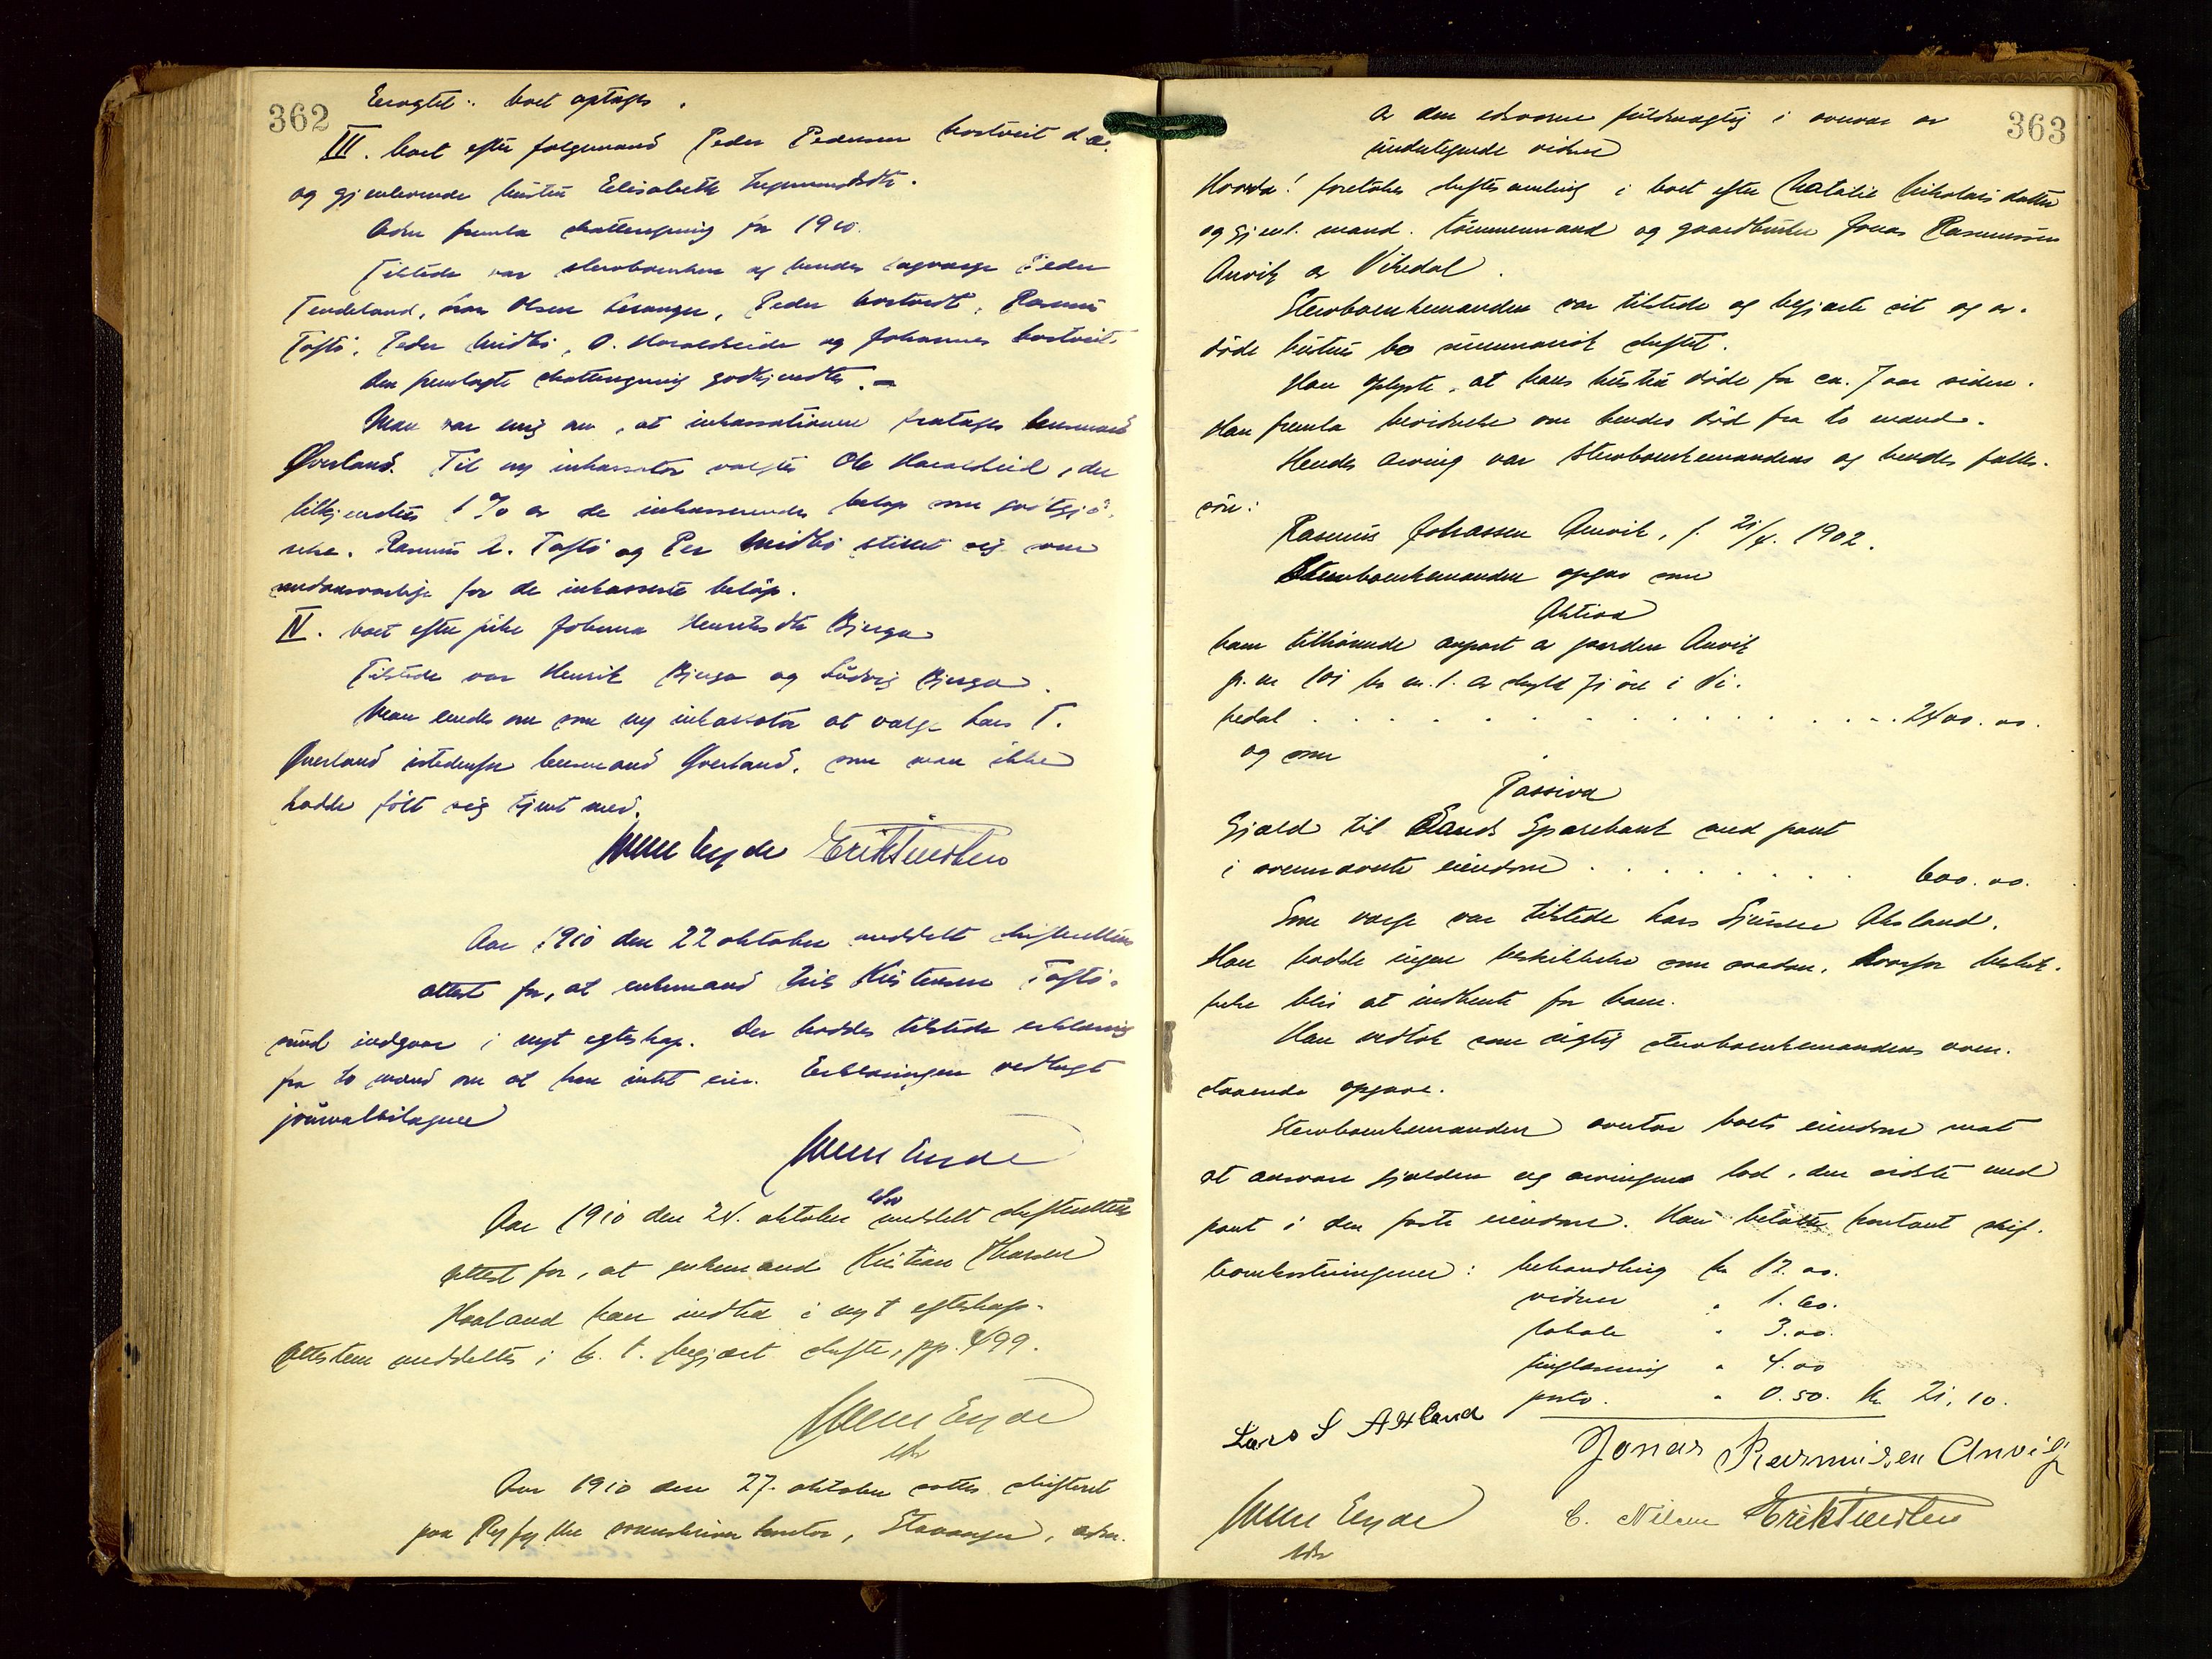 362
Eragtet: boet optages.
III. boet efter forgemand Peder Pedersen Kostveit d. æ.
og gjenlevende hustru Elisabeth
Adm fremla skatteregning for 1910.
Tilstede var sterboenken og hendes lagværge Peder
Tendeland, Olsen, Peder Kostveit, Rasmus
Toftø, Peder Midbø, O. Haraldseide og Johannes Kostveit.
Den fremlagte skatteregning godkjendtes.
Man var enig om, at inkassationen fratages lensmand
Øverland. Til ny inkassator valgtes Ole Haraldseid, der
tilkjendtes 1 % av de inkasserende beløp som godtgjø-
relse. Rasmus A. Toftø og Per Midbø stillet sig som
medansvarlige for de inkasserte beløp.
IV. boet efter pike Johanna Henriksdtr Bjerga
Tilstede var Henrik Bjerga og Ludvig Bjerga.
Man enedes om som ny inkassator at vælge Lars T.
Øverland istedenfor lensmand Øverland, som man ikke
hadde følt sig tjent med.
Erik Tveiten
Aar 1910 den 22 oktober meddelt skifterettens
attest for, at enkemand Nils Kristensen Toftø-
sund indgaar i nyt egteskap. Der hadde tilstede erklæring
fra to mænd om at han intet eier. Erklæringen vedlagt
journalbilagene
Aar 1910 den 24. oktober meddelt skifterettens
attest for, at enkemand Kristian Thorsen
Haaland kan indtræ i nyt egteskap.
Attesten meddeltes i h. t. begjært skifte, pp. 499.
Aar 1910 den 27. oktober sattes skifteret
paa Ryfylke sorenskriverkontor, Stavanger, adm.
363
av den edsvorne fuldmægtig i overvær av
undertegnede vidner
Hvorda! foretoges skiftesamling i boet efter Natalie Nikolaisdatter
og gjenl. mand. tømmermand og gaardbruker Jonas Rasmussen
Anvik av Vikedal.
Sterboenkemanden var tilstede og begjærte sit og av-
døde hustrus bo summarisk skiftet.
Han oplyste, at hans hustru døde for ca. 7 aar siden.
Han fremla bevidnelse om hendes død fra to mænd.
Hendes arving var sterboenkemandens og hendes fælles-
søn:
Rasmus Jonassen Anvik, f. 21/4. 1902.
Sterboenkemanden opgav som
Aktiva
ham tilhørende anpart av gaarden Anvik
g. nr 101 br. nr. 1. av skyld 71 øre i Vi-
kedal . . . . . . . . . . . . . . . . 2400.00.
og som
Passiva
Gjæld til Sands Sparebank med pant
i ovennævnte eiendom . . . . . . . . 600.00.
Som verge var tilstede Lars Sjursen Aksland.
Han hadde ingen beskikkelse som saadan, hvorfor beskik-
kelse blir at indhente for ham.
Han vedtok som rigtig sterboenkemandens oven-
staaende opgave.
Sterboenkemanden overtar boets eiendom mot
at ansvare gjælden og arvingens lod, den sidste med
pant i den faste eiendom. Han betalte kontant skif-
teomkostningerne: behandling kr 12.00.
vidner " 1.60.
lokale " 3.00.
tinglæsning " 4.00
porto. " 0.50. kr 21,10.
Lars S Aksland
Jonas Rasmusen Anvig
C. Nilsen Erik Tveiten